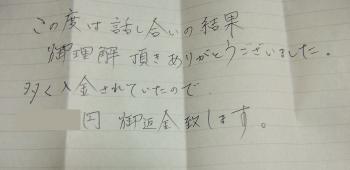 この度は話し合いの結果
御理解頂きありがとうございました。
多く入金されていたので
円 御返金致します。